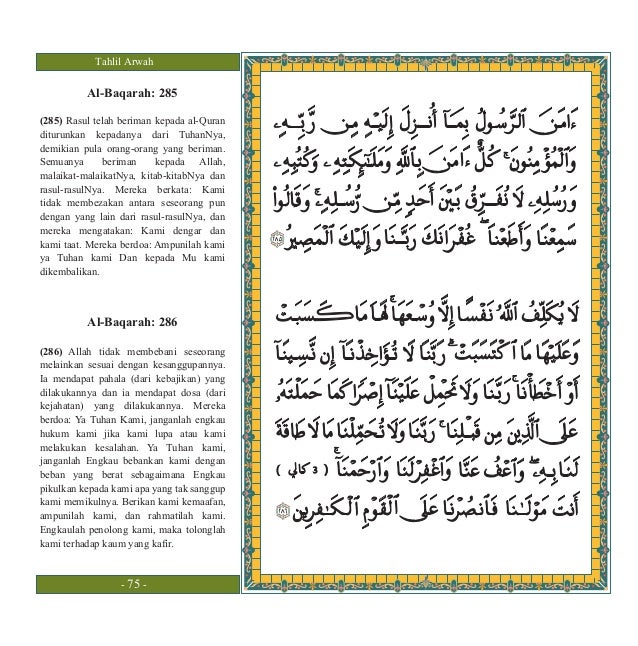 Tahlil Arwah
Al-Baqarah: 285
(285) Rasul telah beriman kepada al-Quran
diturunkan kepadanya dari TuhanNya,
demikian pula orang-orang yang beriman.
Semuanya beriman kepada Allah,
malaikat-malaikatNya, kitab-kitabNya dan
rasul-rasulNya. Mereka berkata: Kami
tidak membezakan antara seseorang pun
dengan yang lain dari rasul-rasulNya, dan
mereka mengatakan: Kami dengar dan
kami taat. Mereka berdoa: Ampunilah kami
ya Tuhan kami Dan kepada Mu kami
dikembalikan.
Al-Baqarah: 286
(286) Allah tidak membebani seseorang
melainkan sesuai dengan kesanggupannya.
Ia mendapat pahala (dari kebajikan) yang
dilakukannya dan ia mendapat dosa (dari
kejahatan) yang dilakukannya. Mereka
berdoa: Ya Tuhan Kami, janganlah engkau
hukum kami jika kami lupa atau kami
melakukan kesalahan. Ya Tuhan kami,
janganlah Engkau bebankan kami dengan
beban yang berat sebagaimana Engkau
pikulkan kepada kami apa yang tak sanggup
kami memikulnya. Berikan kami kemaafan,
ampunilah kami, dan rahmatilah kami.
Engkaulah penolong kami, maka tolonglah
kami terhadap kaum yang kafir.
- 75 -
ءَامَنَ ٱلرَّسُولُ بِمَآ أُنزِلَ إِلَيْهِ مِن رَّبِّهِۦ
وَٱلْمُؤْمِنُونَ ۚ كُلٌّ ءَامَنَ بِٱللَّهِ وَمَلَـٰٓئِكَتِهِۦ وَكُتُبِهِۦ
وَرُسُلِهِۦ لَا نُفَرِّقُ بَيْنَ أَحَدٍ مِّن رُّسُلِهِۦ ۚ وَقَالُوا۟
سَمِعْنَا وَأَطَعْنَا ۖ غُفْرَانَكَ رَبَّنَا وَإِلَيْكَ ٱلْمَصِيرُ ٢٨٥
لَا يُكَلِّفُ ٱللَّهُ نَفْسًا إِلَّا وُسْعَهَا ۚ لَهَا مَا كَسَبَتْ
وَعَلَيْهَا مَا ٱكْتَسَبَتْ ۗ رَبَّنَا لَا تُؤَاخِذْنَآ إِن نَّسِينَآ
أَوْ أَخْطَأْنَا ۚ رَبَّنَا وَلَا تَحْمِلْ عَلَيْنَآ إِصْرًا كَمَا حَمَلْتَهُۥ
عَلَى ٱلَّذِينَ مِن قَبْلِنَا ۚ رَبَّنَا وَلَا تُحَمِّلْنَا مَا لَا طَاقَةَ
لَنَا بِهِۦ ۖ وَٱعْفُ عَنَّا وَٱغْفِرْ لَنَا وَٱرْحَمْنَآ ۚ ( 3 كالي )
أَنتَ مَوْلَىٰنَا فَٱنصُرْنَا عَلَى ٱلْقَوْمِ ٱلْكَـٰفِرِينَ ٢٨٦